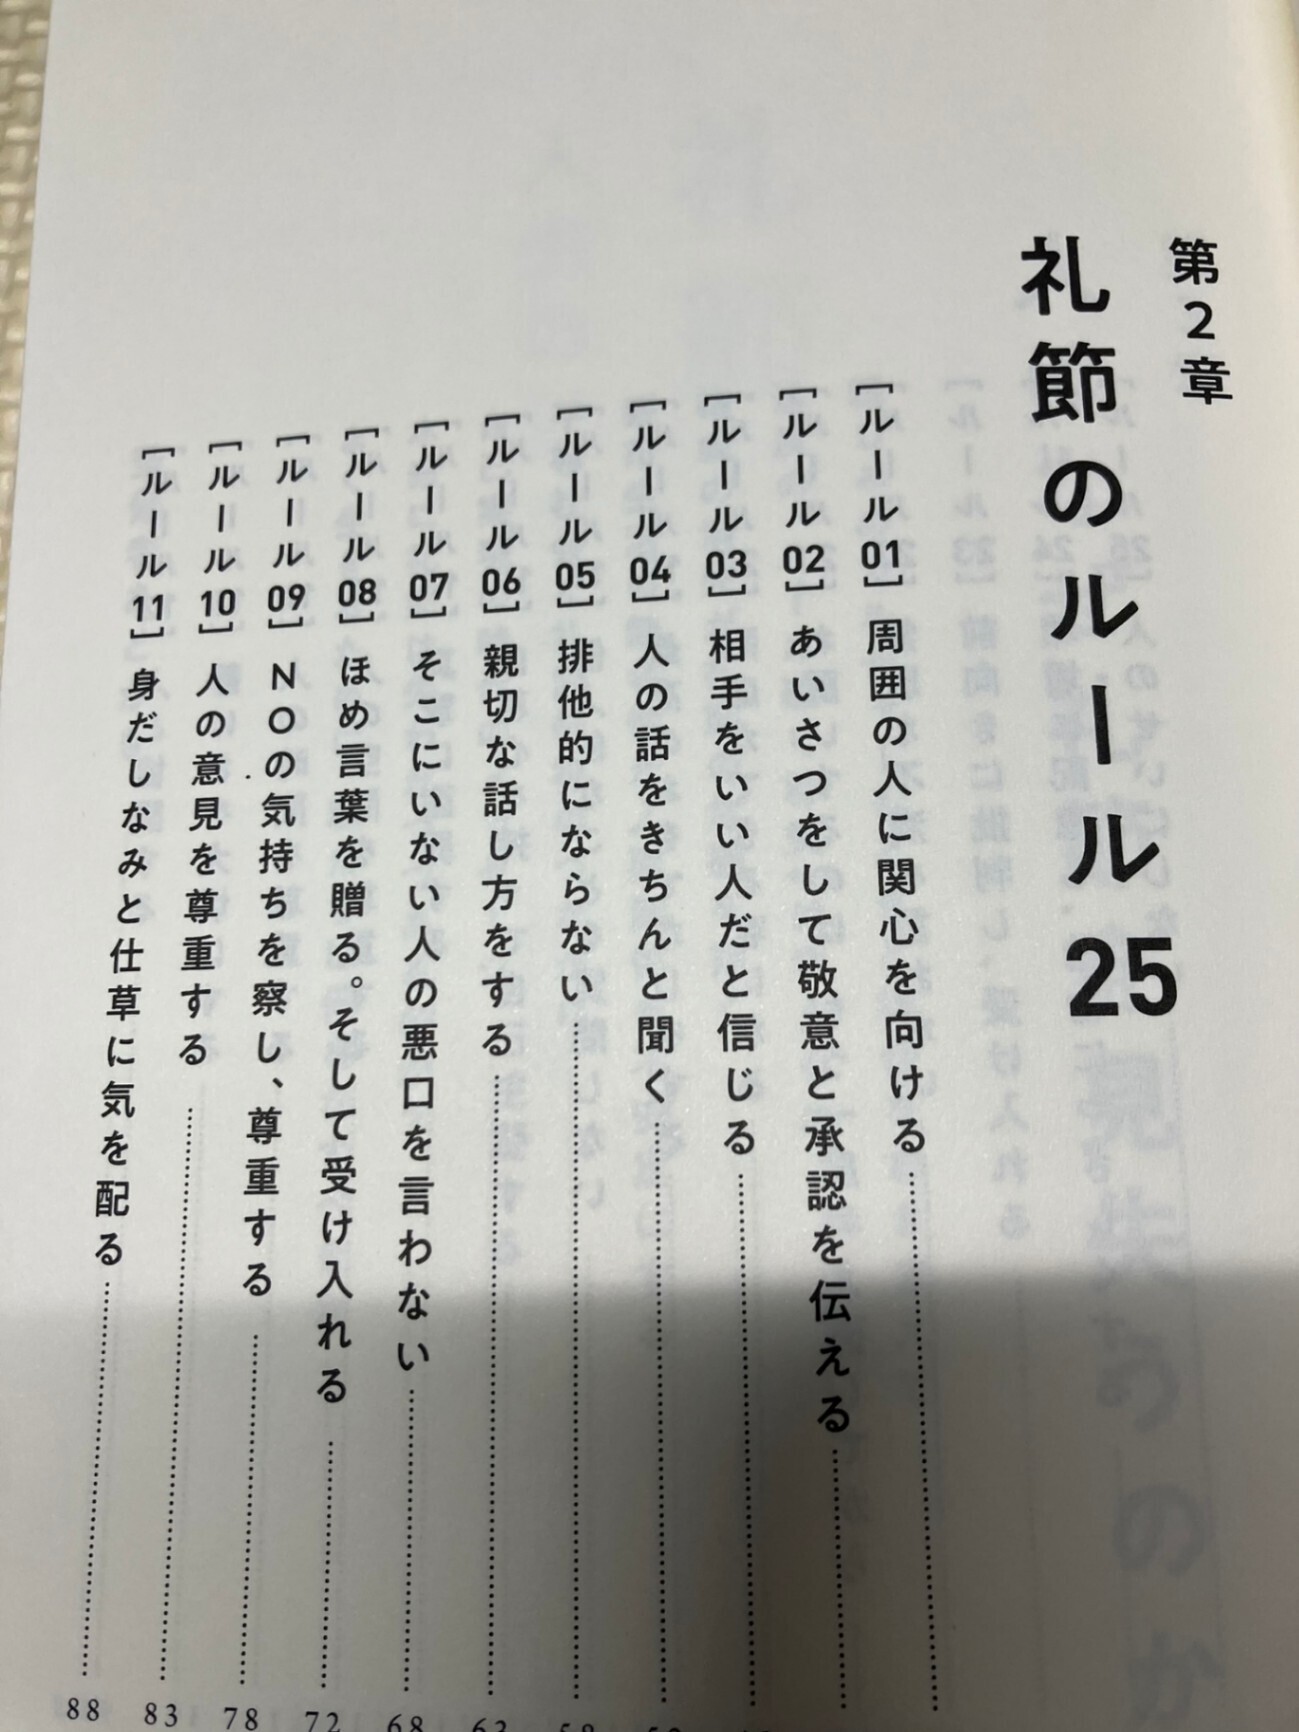 第2章
礼節のルール25
[ルール01] 周囲の人に関心を向ける
[ルール02] あいさつをして敬意と承認を伝える
[ルール03] 相手をいい人だと信じる
[ルール04] 人の話をきちんと聞く
[ルール05] 排他的にならない
[ルール06] 親切な話し方をする
[ルール07] そこにいない人の悪口を言わない 68
[ルール08] ほめ言葉を贈る。そして受け入れる 72
[ルール09] NOの気持ちを察し、尊重する 78
[ルール10] 人の意見を尊重する 83
[ルール11] 身だしなみと仕草に気を配る 88